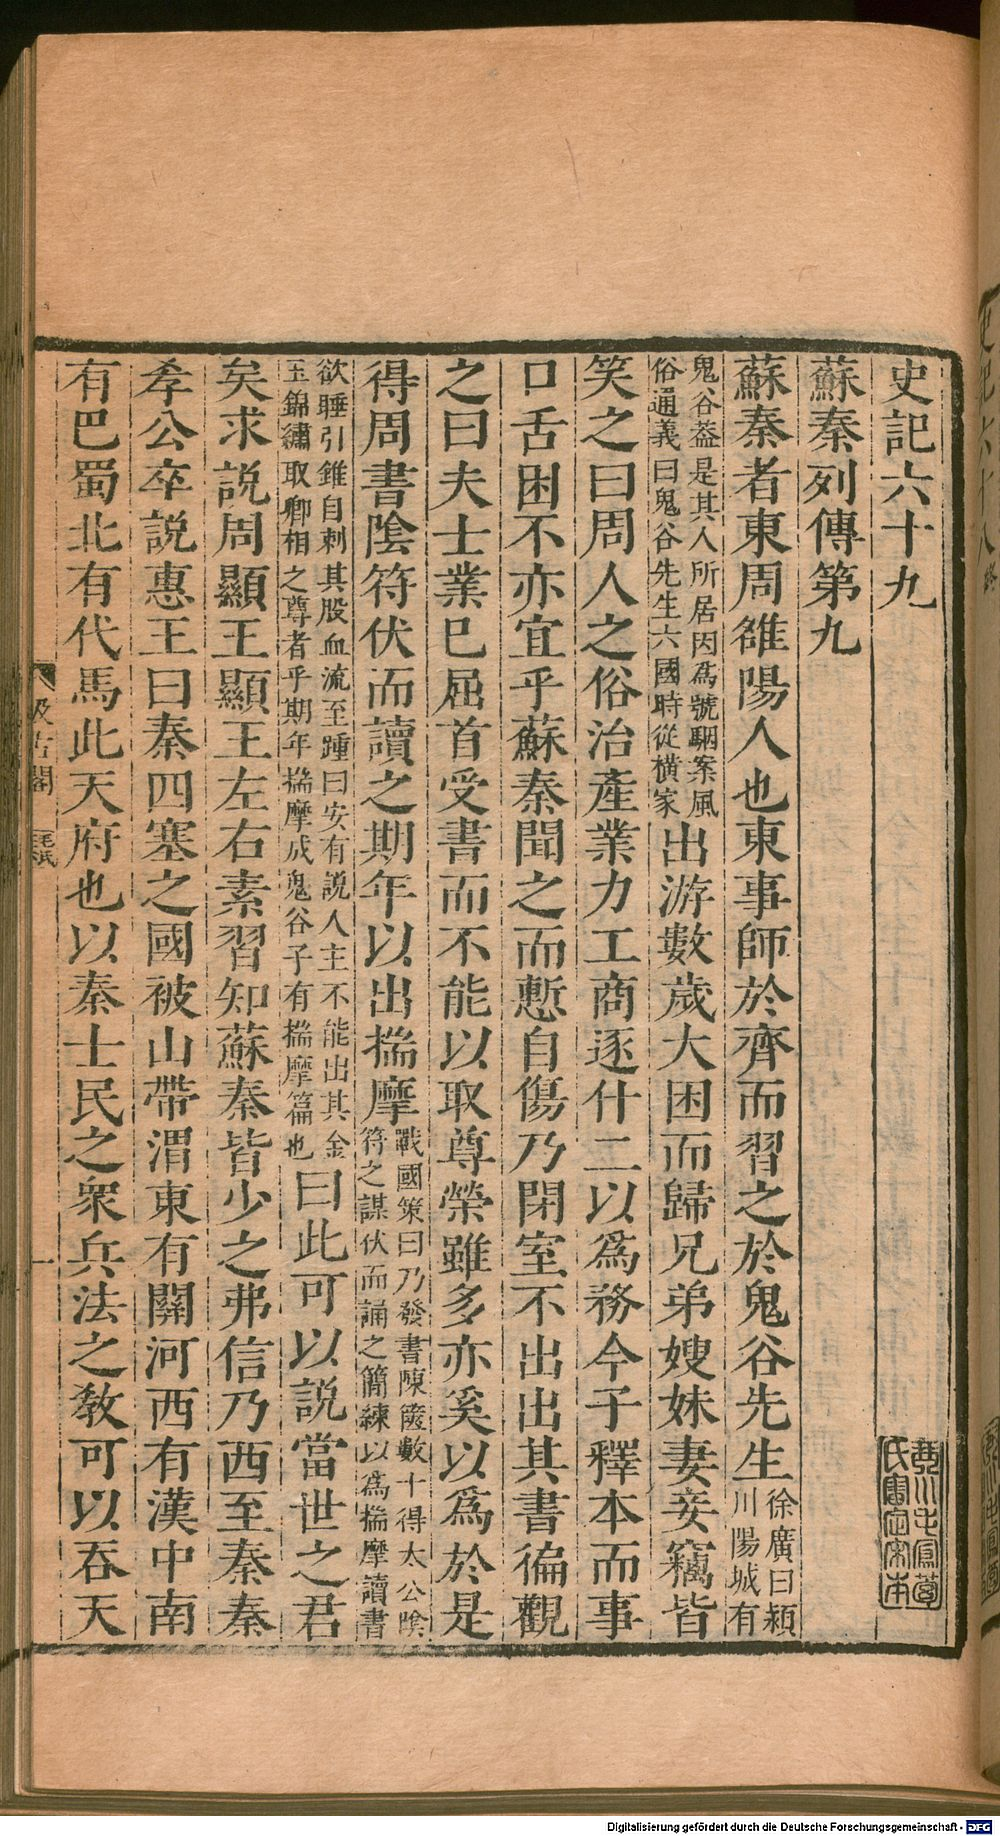 史記六十九
蘇秦列傳第九
蘇秦者東周雒陽人也東事師於齊而習之於鬼谷先生徐廣曰潁川陽城有
鬼谷葢是其人所居因爲號駰案風俗通義曰鬼谷先生六國時從橫家出游數歲大困而歸兄弟嫂妹妻妾竊皆
笑之曰周人之俗治產業力工商逐什二以爲務今子釋本而事
口舌困不亦宜乎蘇秦聞之而慙自傷乃閉室不出出其書徧觀
之曰夫士業已屈首受書而不能以取尊榮雖多亦奚以爲於是
得周書陰符伏而讀之期年以出揣摩戰國策曰乃發書陳篋數十得太公陰符之謀伏而誦之簡練以爲揣摩讀書
欲睡引錐自刺其股血流至踵曰安有說人主不能出其金玉錦繡取卿相之尊者乎期年揣摩成鬼谷子有揣摩篇也曰此可以說當世之君
矣求說周顯王顯王左右素習知蘇秦皆少之弗信乃西至秦秦
孝公卒說惠王曰秦四塞之國被山帶渭東有關河西有漢中南
有巴蜀北有代馬此天府也以秦士民之衆兵法之教可以吞天
汲古閣
毛氏
一
史記六十八
Digitalisierung gefördert durch die Deutsche Forschungsgemeinschaft - DFG